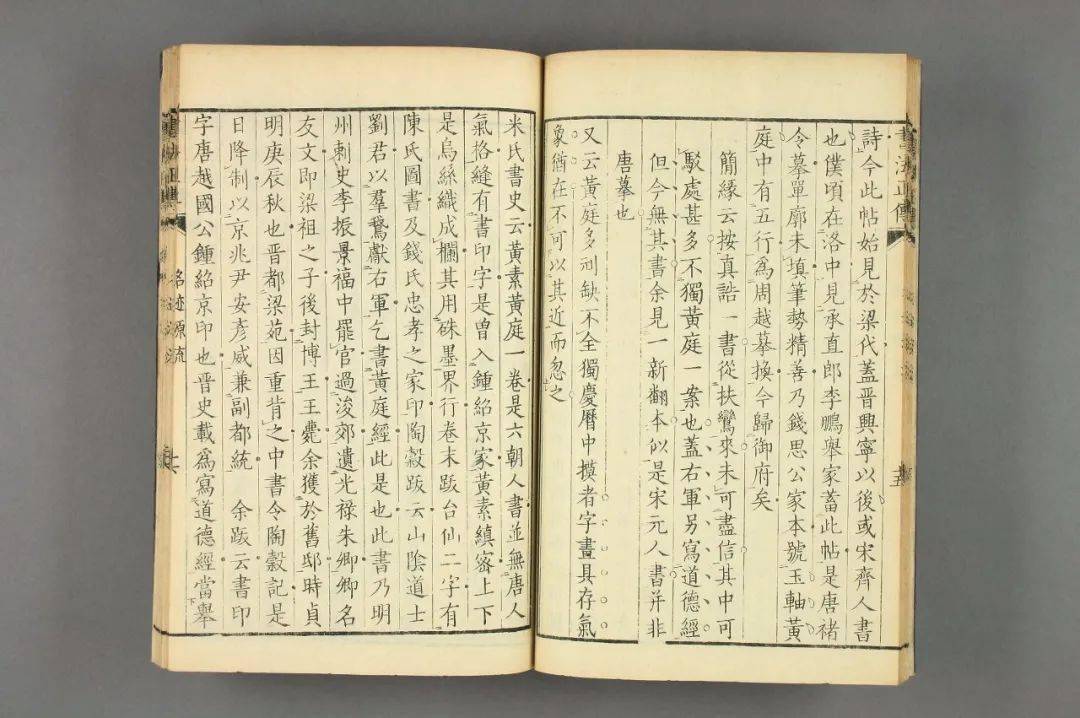 書法正傳
詩今此帖始見於梁代蓋晉興寧以後或宋齊人書
也僕頃在洛中見承直郎李鵬舉家蓄此帖是唐褚
令摹單廓未填筆勢精善乃錢思公家本號玉軸黃
庭中有五行為周越摹換今歸御府矣
簡緣云按真誥一書從扶鸞來未可盡信其中可
駁處甚多不獨黃庭一案也蓋右軍另寫道德經
但今無其書余見一新翻本似是宋元人書并非
唐摹也
又云黃庭多刓缺不全獨慶曆中摸者字畫具存氣
象猶在不可以其近而忽之
米氏書史云黃素黃庭一卷是六朝人書並無唐人
氣格縫有書印字是曾入鍾紹京家黃素縝密上下
是烏絲織成欄其用硃墨界行卷末跋台仙二字有
陳氏圖書及錢氏忠孝之家印陶穀跋云山陰道士
劉君以羣鵞獻右軍乞書黃庭經此是也此書乃明
州刺史李振景福中罷官過浚郊遺光祿朱卿卿名
友文即梁祖之子後封博王王薨余獲於舊邸時貞
明庚辰秋也晉都梁苑因重背之中書令陶穀記是
日降制以京兆尹安彥威兼副都統　余跋云書印
字唐越國公鍾紹京印也晉史載為寫道德經當舉
名迹源流